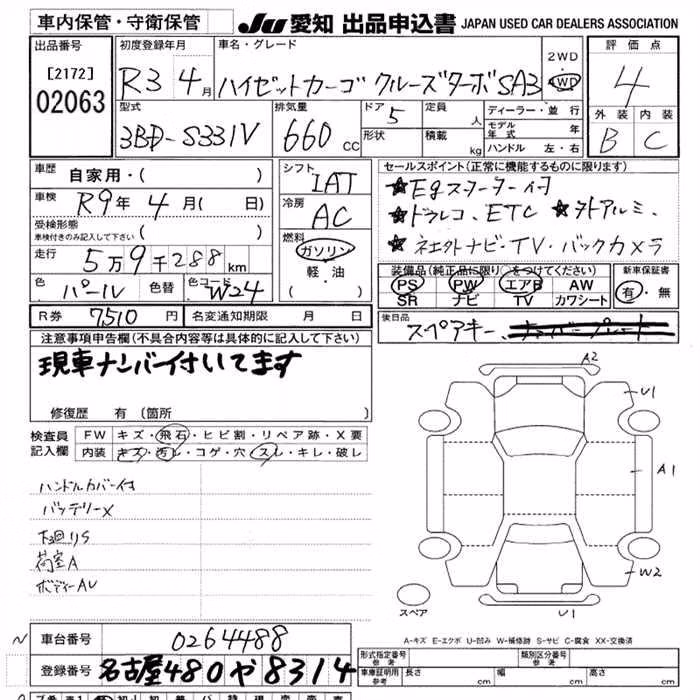 車内保管・守衛保管 JU 愛知 出品申込書 JAPAN USED CAR DEALERS ASSOCIATION
出品番号 初度登録年月 車名・グレード 2WD 評価点
[2172] R3 4月 ハイゼットカーゴ クルーズターボSA3 4WD 4
02063
型式 排気量 ドア 5 定員 人 ディーラー・並行 外装 内装
3BD-S331V 660 cc 形状 積載 kg モデル年式 年 B C
ハンドル 左・右
車歴 自家用・( ) シフト IAT セールスポイント(正常に機能するものに限ります)
車検 R9年 4月( 日) 冷房 AC ★Egスターター付
受検形態 ( ) 燃料 ★ドラレコ、ETC ★社外アルミ、
車検付きのみ記入して下さい ガソリン ★社外ナビ・TV・バックカメラ
走行 5万9千288km 軽・油
装備品(純正品に限り○をつけてください) 新車保証書
色 パール 色替 色コード W24 ( ) PS PW エアB AW 有・無
SR ナビ TV カワシート
R券 7510円 名変通知期限 月 日 後日品 スペアキー、
注意事項申告欄(不具合内容等は具体的に記入して下さい)
現車ナンバー付いてます
修復歴 有(箇所 )
A2
U1
検査員 FW キズ・飛石・ヒビ割・リペア跡・X要
記入欄 内装 キズ・汚レ・コゲ・穴・スレ・キレ・破レ
A1
ハンドルカバー付
バッテリーX
下廻りS
荷室A
ボディーAU
W2
スペア U1
A-キズ E-エクボ U-凹み W-補修跡 S-サビ C-腐食 XX-交換済
N 車台番号 0264488
形式指定番号 参考 類別区分番号 参考
登録番号 名古屋480や8314
車庫証明用 参考 長さ cm 幅 cm 高さ cm